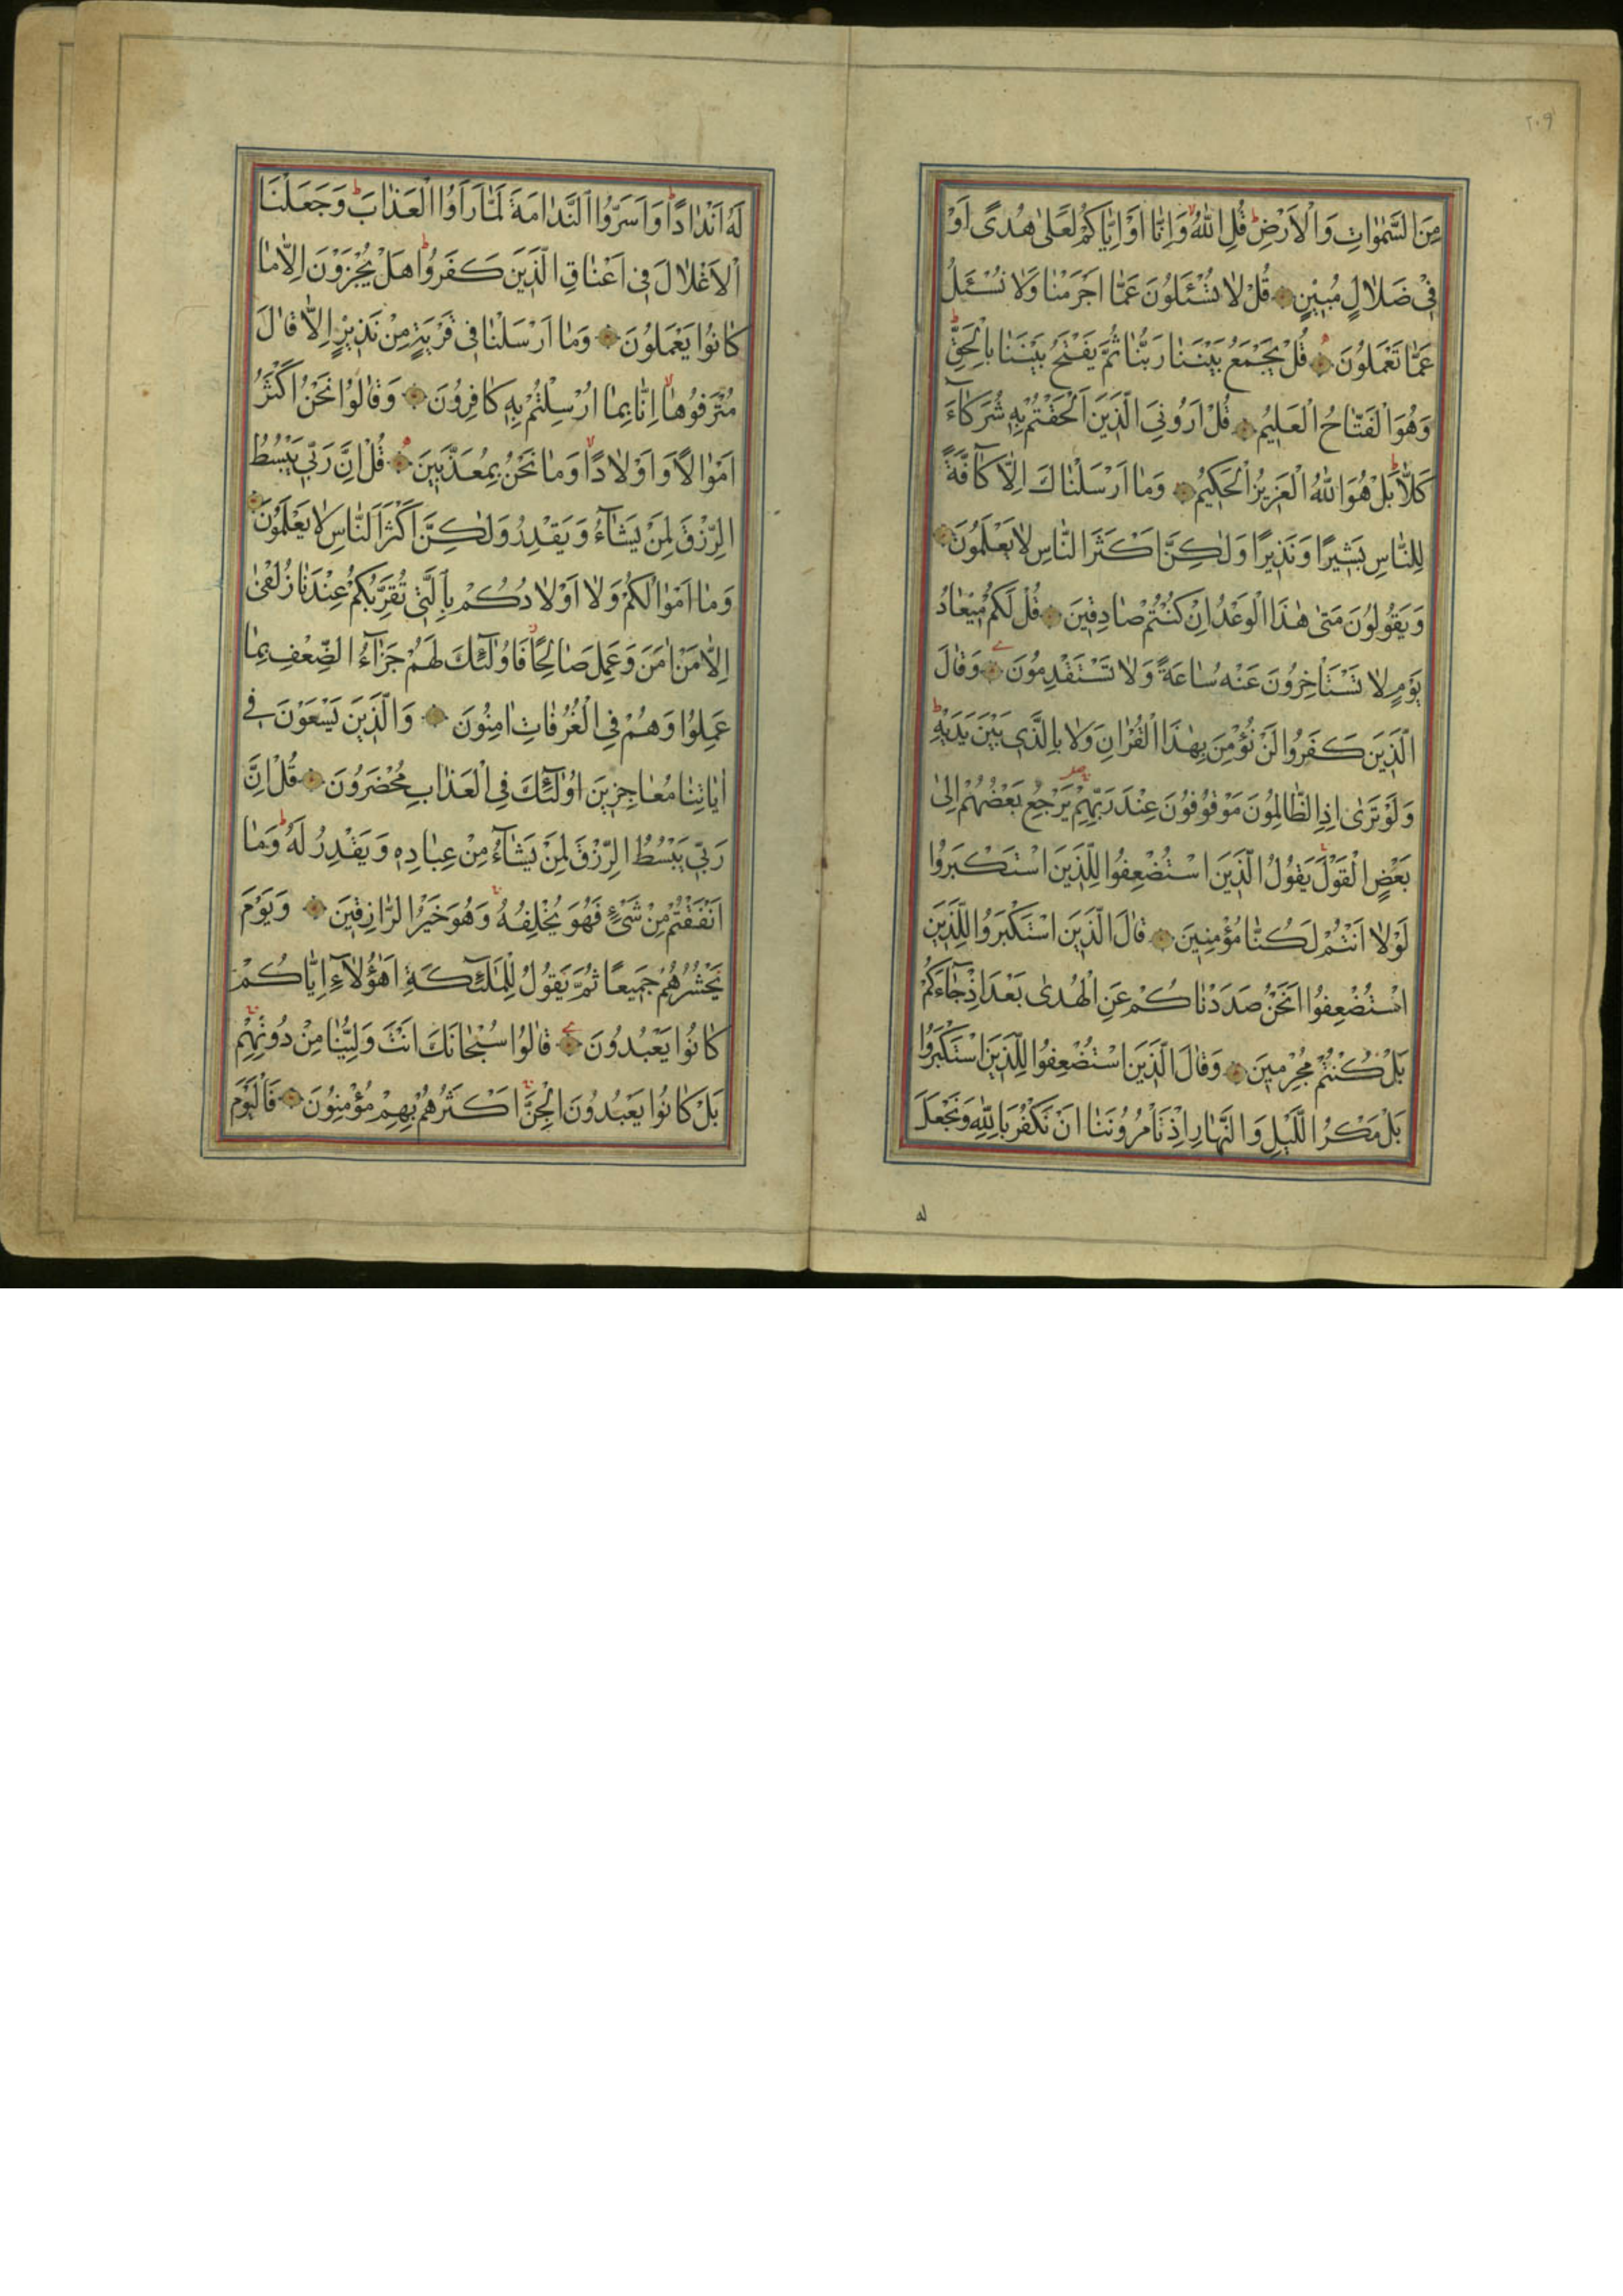 ٢٠٩
مِنَ السَّمٰوَاتِ وَالْاَرْضِ قُلِ اللّٰهُ وَاِنَّا اَوْ اِيَّاكُمْ لَعَلٰى هُدًى اَوْ
فِي ضَلَالٍ مُبِينٍ قُلْ لَا تُسْئَلُونَ عَمَّا اَجْرَمْنَا وَلَا نُسْئَلُ
عَمَّا تَعْمَلُونَ قُلْ يَجْمَعُ بَيْنَنَا رَبُّنَا ثُمَّ يَفْتَحُ بَيْنَنَا بِالْحَقِّ
وَهُوَ الْفَتَّاحُ الْعَلِيمُ قُلْ اَرُونِيَ الَّذِينَ اَلْحَقْتُمْ بِهِ شُرَكَآءَ
كَلَّا بَلْ هُوَ اللّٰهُ الْعَزِيزُ الْحَكِيمُ وَمَا اَرْسَلْنَاكَ اِلَّا كَآفَّةً
لِلنَّاسِ بَشِيرًا وَنَذِيرًا وَلٰكِنَّ اَكْثَرَ النَّاسِ لَا يَعْلَمُونَ
وَيَقُولُونَ مَتٰى هٰذَا الْوَعْدُ اِنْ كُنْتُمْ صَادِقِينَ قُلْ لَكُمْ مِيعَادُ
يَوْمٍ لَا تَسْتَأْخِرُونَ عَنْهُ سَاعَةً وَلَا تَسْتَقْدِمُونَ وَقَالَ
الَّذِينَ كَفَرُوا لَنْ نُؤْمِنَ بِهٰذَا الْقُرْاٰنِ وَلَا بِالَّذِي بَيْنَ يَدَيْهِ
وَلَوْ تَرٰى اِذِ الظَّالِمُونَ مَوْقُوفُونَ عِنْدَ رَبِّهِمْ يَرْجِعُ بَعْضُهُمْ اِلٰى
بَعْضٍ الْقَوْلَ يَقُولُ الَّذِينَ اسْتُضْعِفُوا لِلَّذِينَ اسْتَكْبَرُوا
لَوْلَا اَنْتُمْ لَكُنَّا مُؤْمِنِينَ قَالَ الَّذِينَ اسْتَكْبَرُوا لِلَّذِينَ
اسْتُضْعِفُوا اَنَحْنُ صَدَدْنَاكُمْ عَنِ الْهُدٰى بَعْدَ اِذْ جَآءَكُمْ
بَلْ كُنْتُمْ مُجْرِمِينَ وَقَالَ الَّذِينَ اسْتُضْعِفُوا لِلَّذِينَ اسْتَكْبَرُوا
بَلْ مَكْرُ الَّيْلِ وَالنَّهَارِ اِذْ تَأْمُرُونَنَا اَنْ نَكْفُرَ بِاللّٰهِ وَنَجْعَلَ
له
لَهُ اَنْدَادًا وَاَسَرُّوا النَّدَامَةَ لَمَّا رَاَوُا الْعَذَابَ وَجَعَلْنَا
الْاَغْلَالَ فِي اَعْنَاقِ الَّذِينَ كَفَرُوا هَلْ يُجْزَوْنَ اِلَّا مَا
كَانُوا يَعْمَلُونَ وَمَا اَرْسَلْنَا فِي قَرْيَةٍ مِنْ نَذِيرٍ اِلَّا قَالَ
مُتْرَفُوهَا اِنَّا بِمَا اُرْسِلْتُمْ بِهِ كَافِرُونَ وَقَالُوا نَحْنُ اَكْثَرُ
اَمْوَالًا وَاَوْلَادًا وَمَا نَحْنُ بِمُعَذَّبِينَ قُلْ اِنَّ رَبِّي يَبْسُطُ
الرِّزْقَ لِمَنْ يَشَآءُ وَيَقْدِرُ وَلٰكِنَّ اَكْثَرَ النَّاسِ لَا يَعْلَمُونَ
وَمَا اَمْوَالُكُمْ وَلَا اَوْلَادُكُمْ بِالَّتِي تُقَرِّبُكُمْ عِنْدَنَا زُلْفٰى
اِلَّا مَنْ اٰمَنَ وَعَمِلَ صَالِحًا فَاُولٰٓئِكَ لَهُمْ جَزَآءُ الضِّعْفِ بِمَا
عَمِلُوا وَهُمْ فِي الْغُرُفَاتِ اٰمِنُونَ وَالَّذِينَ يَسْعَوْنَ فِي
اٰيَاتِنَا مُعَاجِزِينَ اُولٰٓئِكَ فِي الْعَذَابِ مُحْضَرُونَ قُلْ اِنَّ
رَبِّي يَبْسُطُ الرِّزْقَ لِمَنْ يَشَآءُ مِنْ عِبَادِهِ وَيَقْدِرُ لَهُ وَمَا
اَنْفَقْتُمْ مِنْ شَيْءٍ فَهُوَ يُخْلِفُهُ وَهُوَ خَيْرُ الرَّازِقِينَ وَيَوْمَ
يَحْشُرُهُمْ جَمِيعًا ثُمَّ يَقُولُ لِلْمَلٰٓئِكَةِ اَهٰٓؤُلَآءِ اِيَّاكُمْ
كَانُوا يَعْبُدُونَ قَالُوا سُبْحَانَكَ اَنْتَ وَلِيُّنَا مِنْ دُونِهِمْ
بَلْ كَانُوا يَعْبُدُونَ الْجِنَّ اَكْثَرُهُمْ بِهِمْ مُؤْمِنُونَ فَالْيَوْمَ